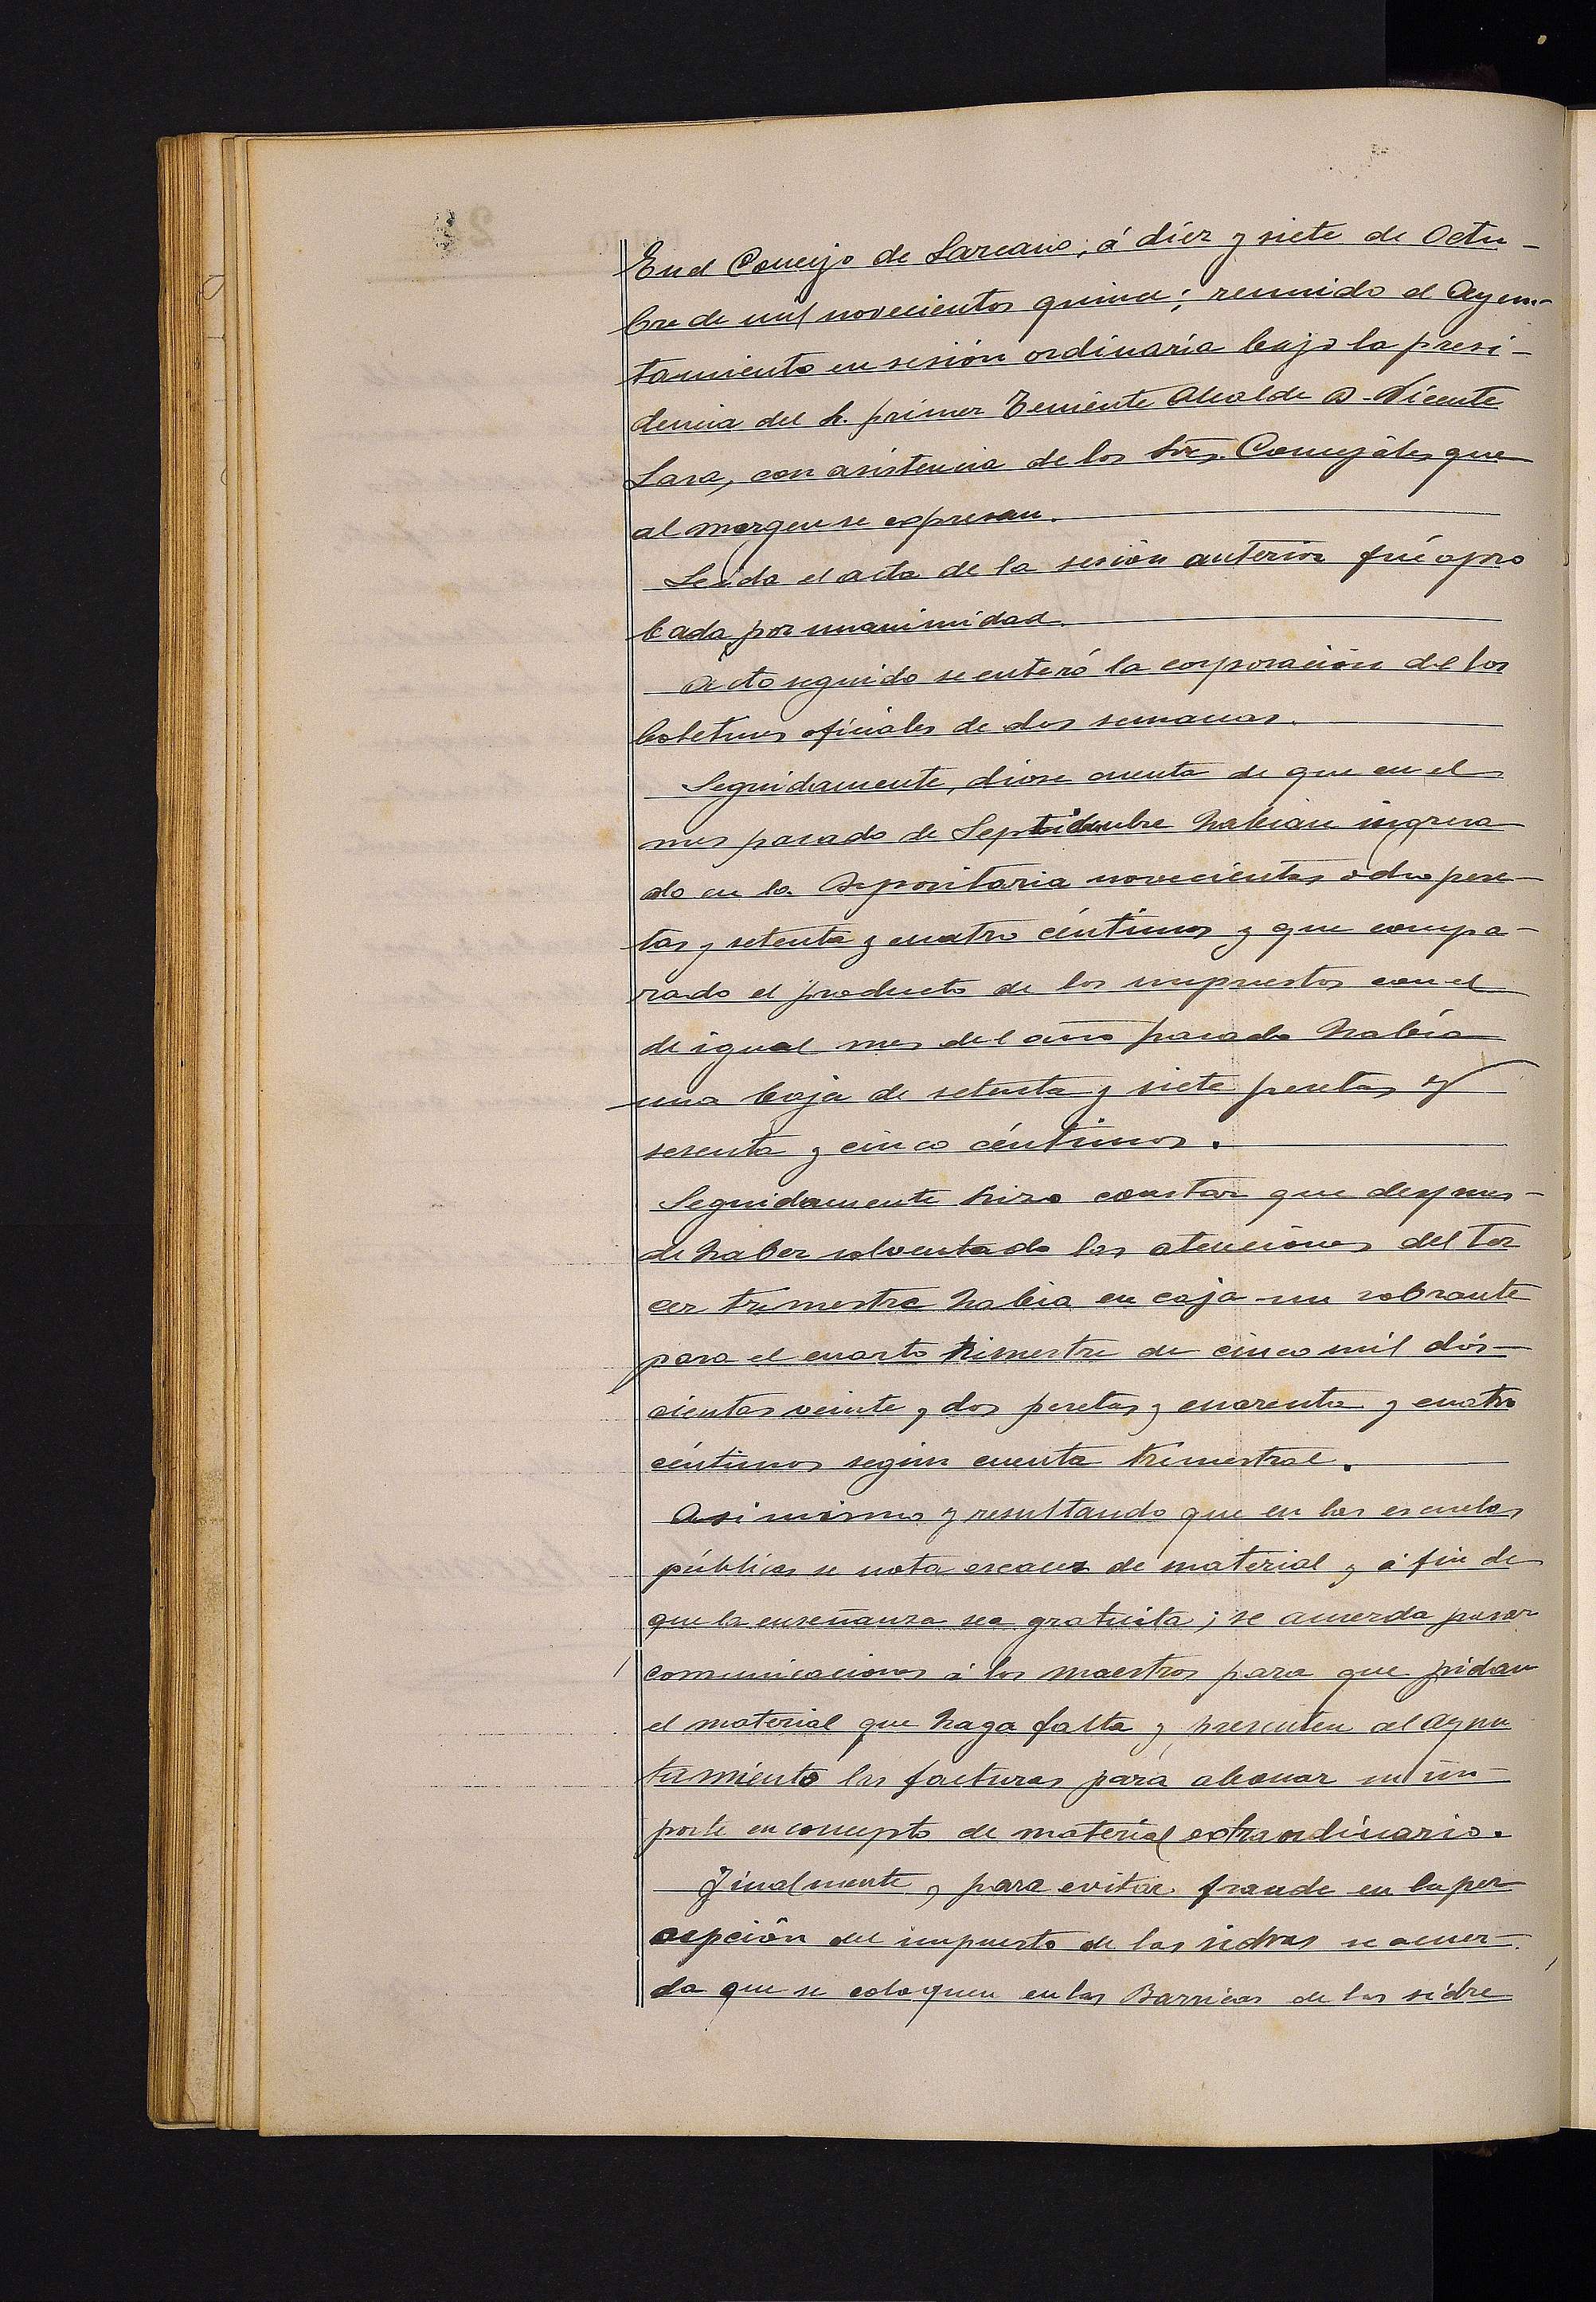 En el Concejo de Lazcano, á diez y siete de Octu-
bre de mil novecientos quince; reunido el Ayun-
tamiento en sesión ordinaria bajo la presi-
dencia del S. primer Teniente Alcalde D. Vicente
Lasa, con asistencia de los Sres. Concejáles que
al margen se expresan.
Leida el acta de la sesión anterior fué apro
bada por unanimidad.
Acto seguido se enteró la corporación de los
boletines oficiales de dos semanas.
Seguidamente, diose cuenta de que en el
mes pasado de Septiembre habian ingresa
do en la Depositaria novecientas ocho pese-
tas y setenta y cuatro céntimos y que compa-
rado el producto de los impuestos con el
de igual mes del año pasado habia
una baja de setenta y siete pesetas y
sesenta y cinco céntimos.
Seguidamente hizo constar que despues
de haber solventado las atenciones del ter
cer trimestre habia en caja un sobrante
para el cuarto trimestre de cinco mil dos-
cientas veinte y dos pesetas y cuarenta y cuatro
céntimos según cuenta trimestral.
Asi mismo y resultando que en las escuelas
públicas se nota escacez de material y á fin de
que la enseñanza sea gratuita; se acuerda pasar
comunicaciones á los maestros para que pidan
el material que haga falta y presenten al Ayun
tamiento las facturas para abonar su im-
porte en concepto de material extraordinario.
Finalmente y para evitar fraude en la per
cepción del impuesto de las sidras se acuer-
da que se coloquen en las Barricas de las sidre